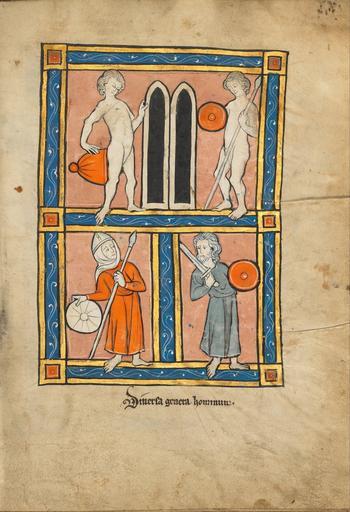 Diuersa genera hominum.